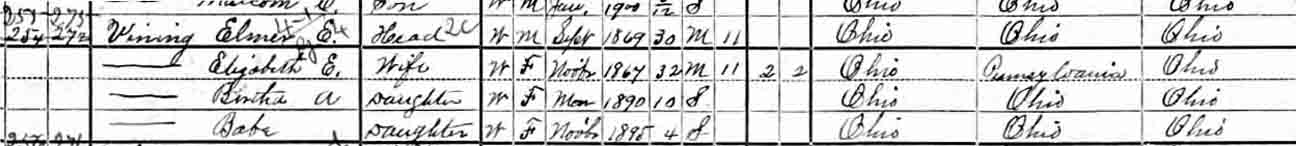 C. Son W M Jan 1900 5/12 S Ohio Ohio Ohio
254 272 Vining Elmer E. Head W M Sept 1869 30 M 11 Ohio Ohio Ohio
Elizabeth E. Wife W F Novbr 1867 32 M 11 2 2 Ohio Pennsylvania Ohio
Bertha A Daughter W F Mar 1890 10 S Ohio Ohio Ohio
Babe Daughter W F Novbr 1895 4 S Ohio Ohio Ohio